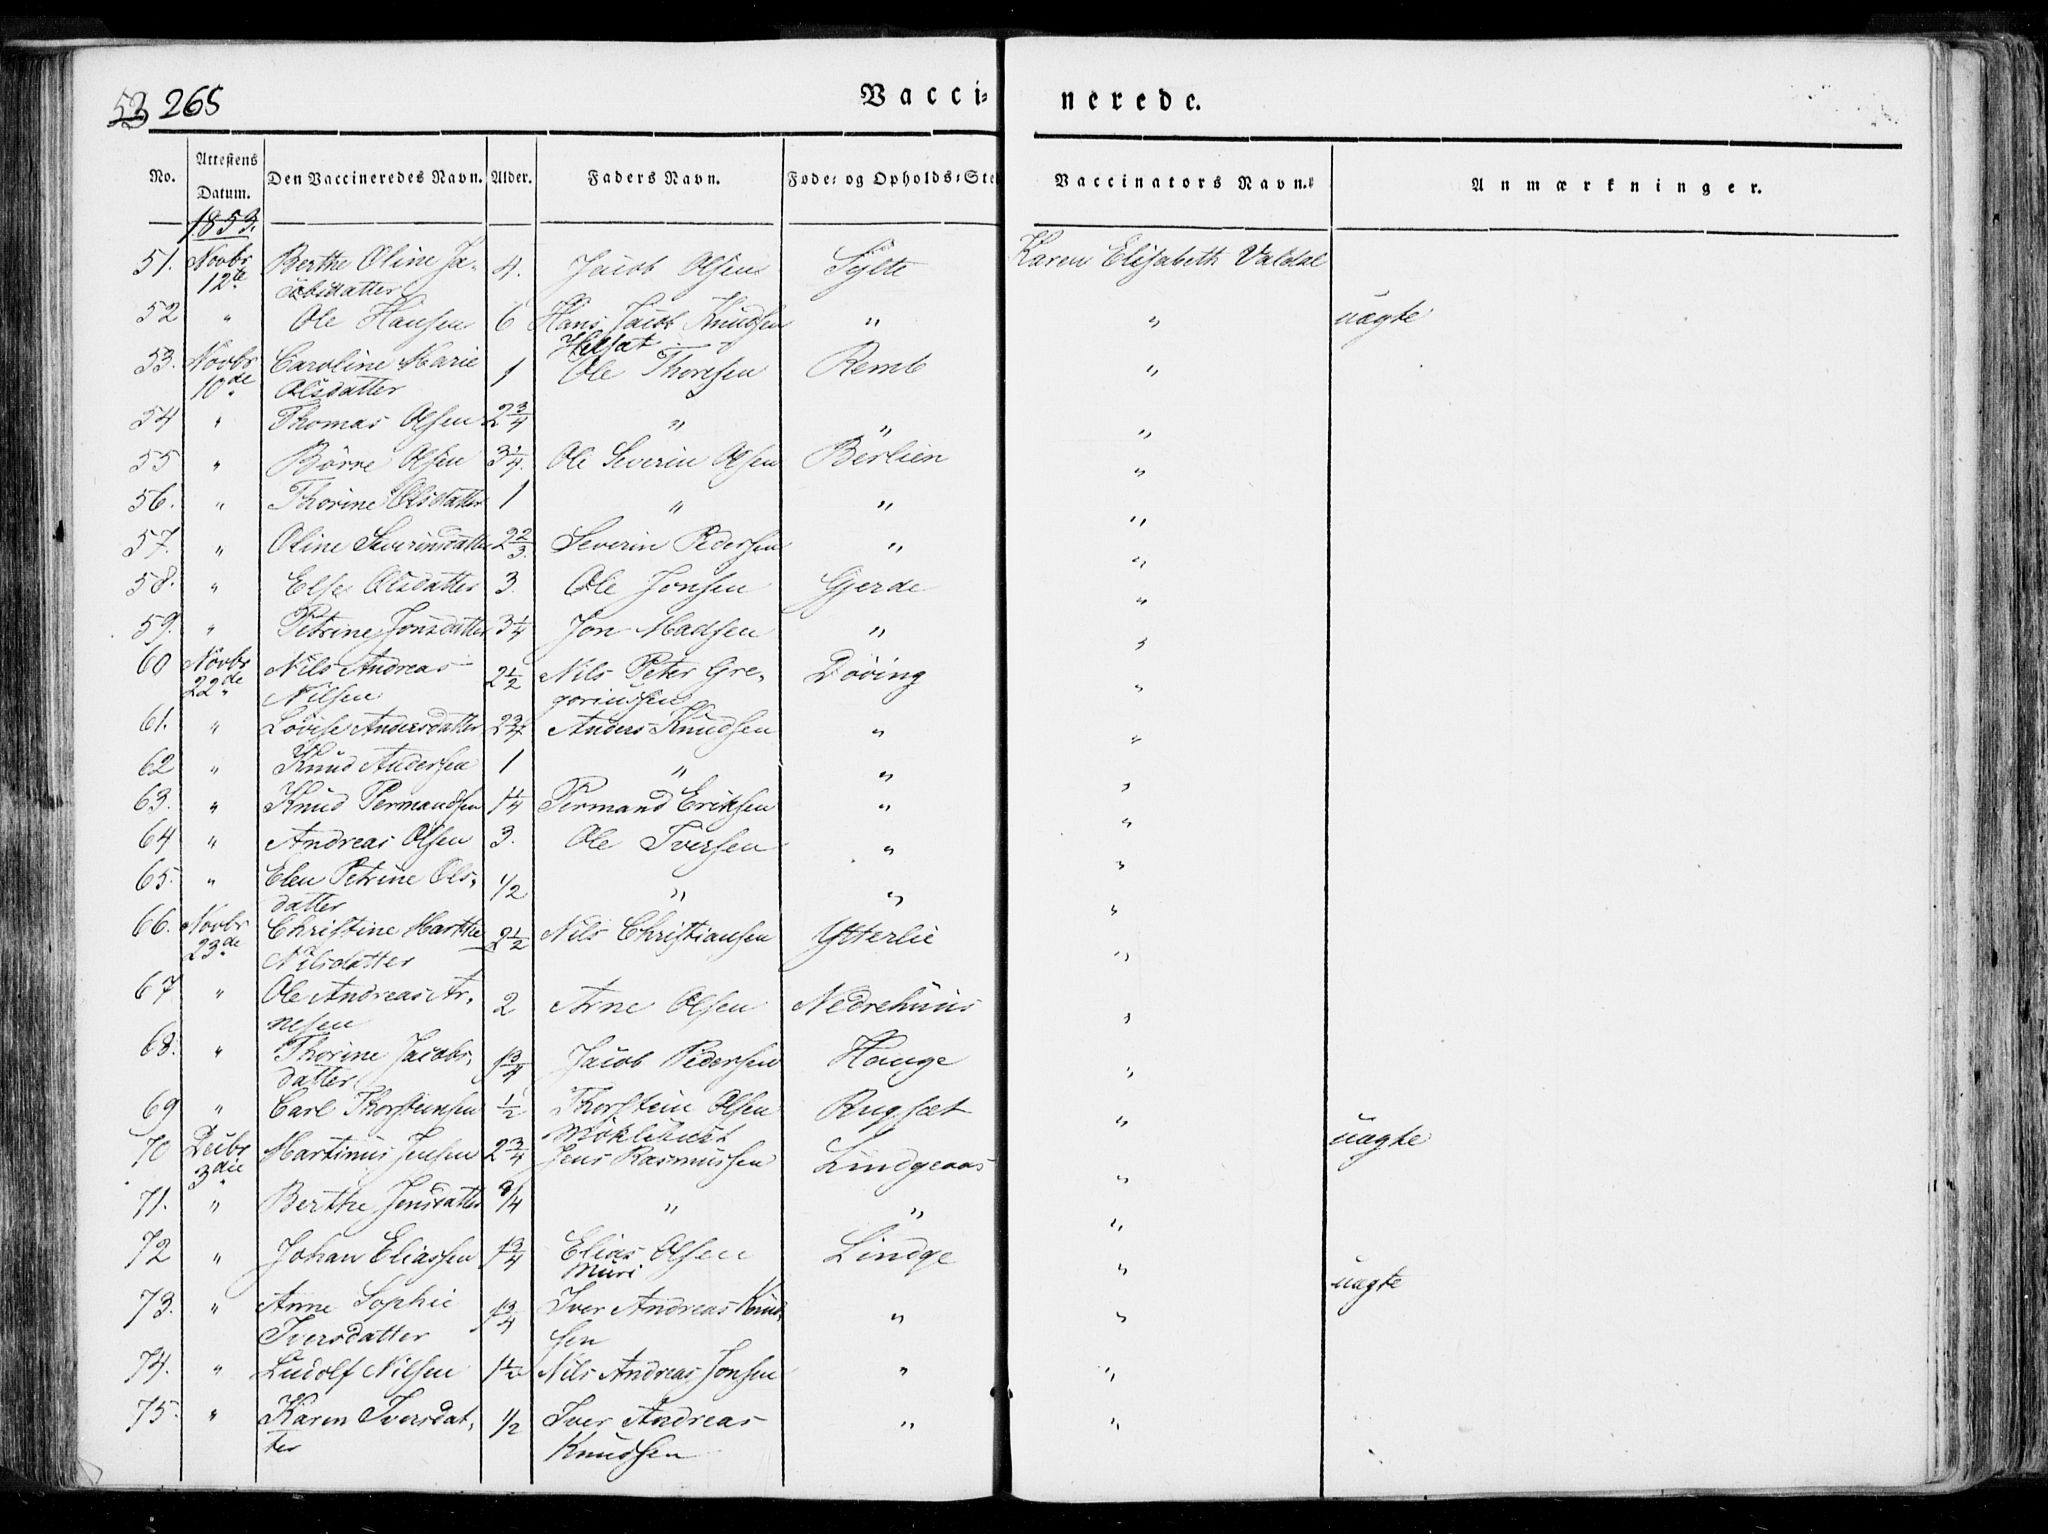 53 265
Vacci- nerede.
No. Attestens Datum. Den Vaccineredes Navn. Alder. Faders Navn. Føde- og Opholds-Ste Vaccinators Navn. Anmærkninger.
1853.
51. Novbr 12te Berthe Oline Ja- 4. Jacob Olsen Sylte Karen Elisabeth Valdal
cobsdatter
52 " Ole Hansen 6 Hans Jacob Knudsen " " uægte
53. Novbr 10de Caroline Marie 1 Ole Thoresen Remb "
Olsdatter
54 " Thomas Olsen 2 3/4 " " "
55 " Børre Olsen 3 1/4. Ole Severin Olsen Berlien "
56. " Thorine Olsdatter 1 " " "
57. " Oline Severinsdatter 2 2/3. Severin Pedersen " "
58. " Else Olsdatter 3. Ole Jonsen Gjerde "
59. " Petrine Jonsdatter 3 1/4 Jon Madsen " "
60 Novbr 22de Nils Andreas 2 1/2 Nils Peter Gre- Døving "
Nilsen goriussen
61. " Lovise Andersdatter 2 3/4 Anders Knudsen " "
62 " Knud Andersen 1 " " "
63. " Knud Permandsen 1 1/4 Permand Eriksen " "
64 " Andreas Olsen 3. Ole Iversen " "
65. " Elen Petrine Ols- 1/2 " " "
datter
66. Novbr 23de Christine Marthe 2 1/2 Nils Christiansen Ytterlie "
Nilsdatter
67 " Ole Andreas Ar- 2 Arne Olsen Nedrehuus "
nesen
68. " Thorine Jacobs- 1 3/4 Jacob Pedersen Hauge "
datter
69 " Carl Thorsteinsen 1/2 Thorstein Olsen Rugsæt "
Møklebust
70 Decbr 3die Martinus Jensen 2 3/4 Jens Rasmussen Lindgeaas " uægte
71. " Berthe Jensdatter 3/4 " " "
72 " Johan Eliassen 1 3/4 Elias Olsen Lindge "
Muri
73. " Anne Sophie 1 3/4 Iver Andreas Knud- " " uægte
Iversdatter sen
74. " Ludolf Nilsen 1 1/2 Nils Andreas Jonsen " "
75. " Karen Iversdat- 1/2 Iver Andreas " "
ter Knudsen